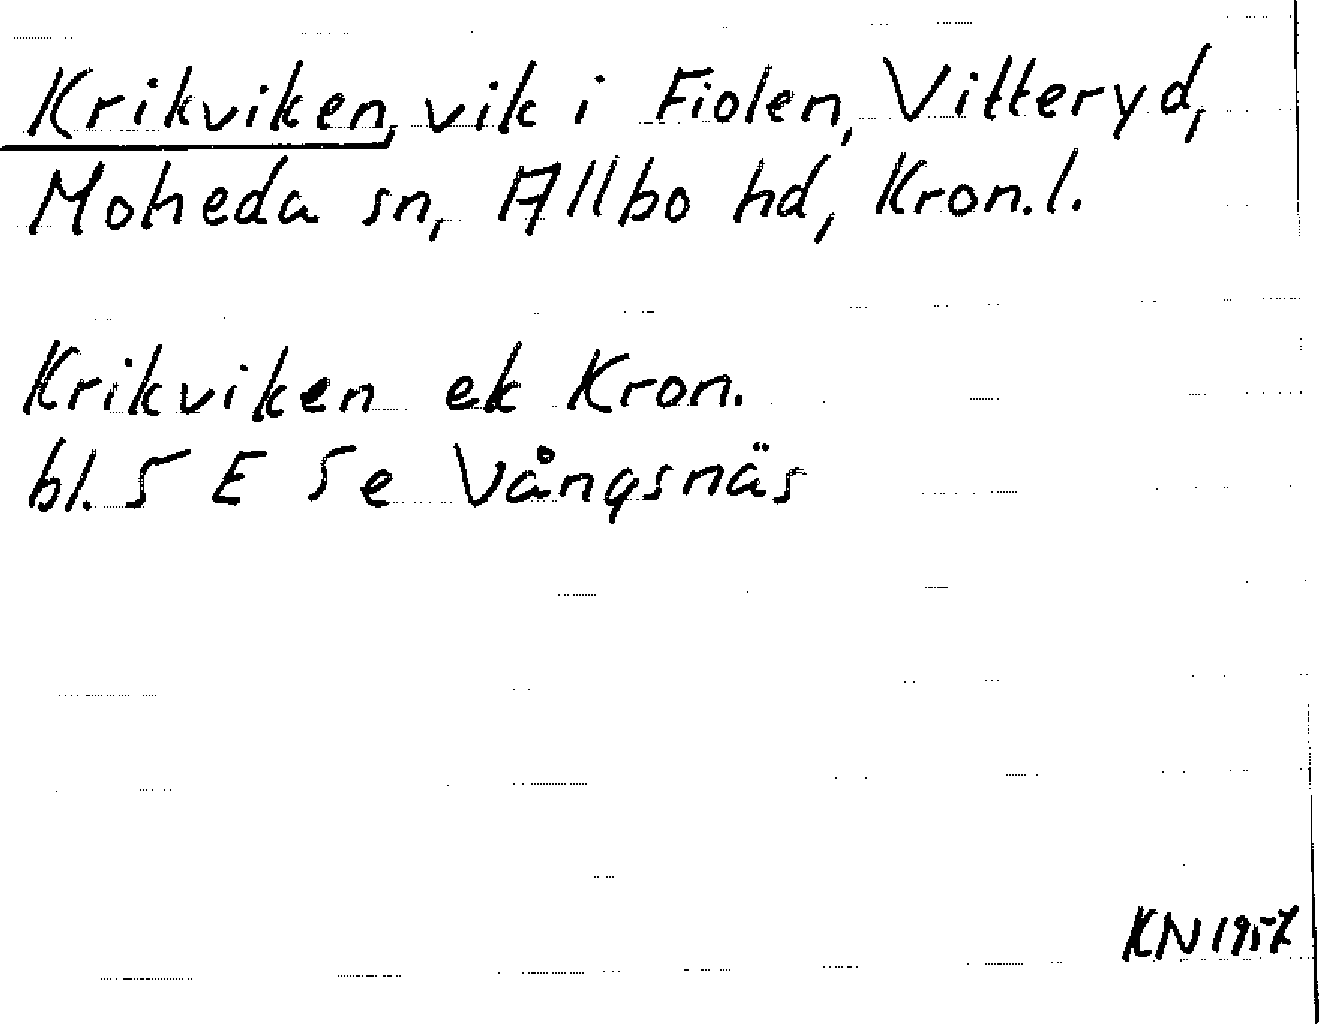 Krikviken, vik i Fiolen, Vitteryd,
Moheda sn, Allbo hd, Kron.l.
Krikviken ek Kron.
bl. 5 E 5e Vångsnäs
KN 1957